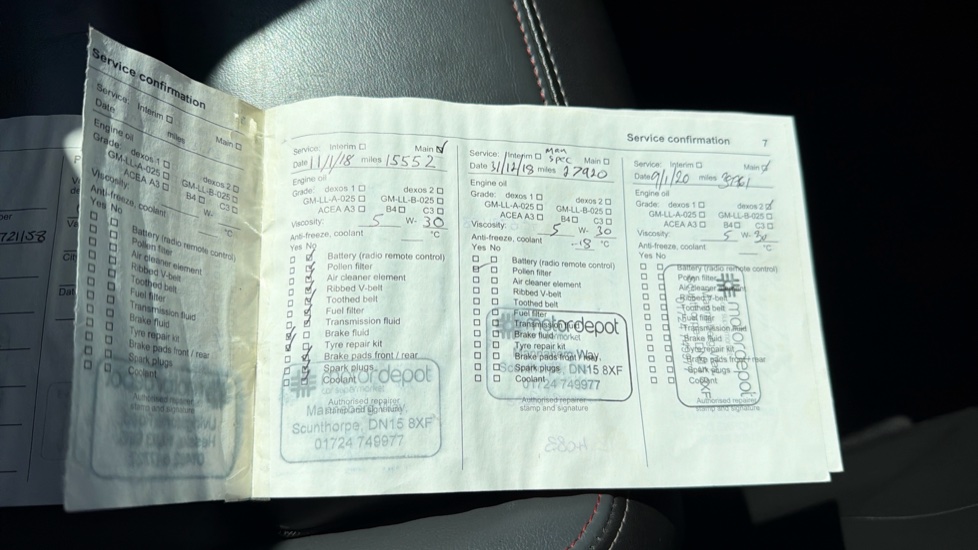 721158
Service confirmation
Service: Interim ☐ Main ☐
Date miles
Engine oil
Grade: dexos 1 ☐ dexos 2 ☐
GM-LL-A-025 ☐ GM-LL-B-025 ☐
ACEA A3 ☐ B4 ☐ C3 ☐
Viscosity: W-
Anti-freeze, coolant °C
Yes No
Battery (radio remote control)
Pollen filter
Air cleaner element
Ribbed V-belt
Toothed belt
Fuel filter
Transmission fluid
Brake fluid
Tyre repair kit
Brake pads front / rear
Spark plugs
Coolant
Authorised repairer
stamp and signature
Service: Interim ☐ Main ☑
Date 11/1/18 miles 15552
Engine oil
Grade: dexos 1 ☐ dexos 2 ☐
GM-LL-A-025 ☐ GM-LL-B-025 ☐
ACEA A3 ☐ B4 ☐ C3 ☐
Viscosity: 5 W- 30
Anti-freeze, coolant °C
Yes No
Battery (radio remote control)
Pollen filter
Air cleaner element
Ribbed V-belt
Toothed belt
Fuel filter
Transmission fluid
Brake fluid
Tyre repair kit
Brake pads front / rear
Spark plugs
Coolant
motordepot
car supermarket
Authorised repairer
stamp and signature
Scunthorpe, DN15 8XF
01724 749977
Service confirmation 7
Service: Interim ☐ man spec Main ☐
Date 31/12/18 miles 27920
Engine oil
Grade: dexos 1 ☐ dexos 2 ☐
GM-LL-A-025 ☐ GM-LL-B-025 ☐
ACEA A3 ☐ B4 ☐ C3 ☐
Viscosity: 5 W- 30
Anti-freeze, coolant -18 °C
Yes No
Battery (radio remote control)
Pollen filter
Air cleaner element
Ribbed V-belt
Toothed belt
Fuel filter
Transmission fluid
Brake fluid
Tyre repair kit
Brake pads front / rear
Spark plugs
Coolant
motordepot
Way,
DN15 8XF
01724 749977
Authorised repairer
stamp and signature
Service: Interim ☐ Main ☑
Date 9/1/20 miles
Engine oil
Grade: dexos 1 ☐ dexos 2 ☑
GM-LL-A-025 ☐ GM-LL-B-025 ☐
ACEA A3 ☐ B4 ☐ C3 ☐
Viscosity: 5 W- 30
Anti-freeze, coolant °C
Yes No
Battery (radio remote control)
Pollen filter
Air cleaner element
Ribbed V-belt
Toothed belt
Fuel filter
Transmission fluid
Brake fluid
Tyre repair kit
Brake pads front / rear
Spark plugs
Coolant
motordepot
Authorised repairer
stamp and signature